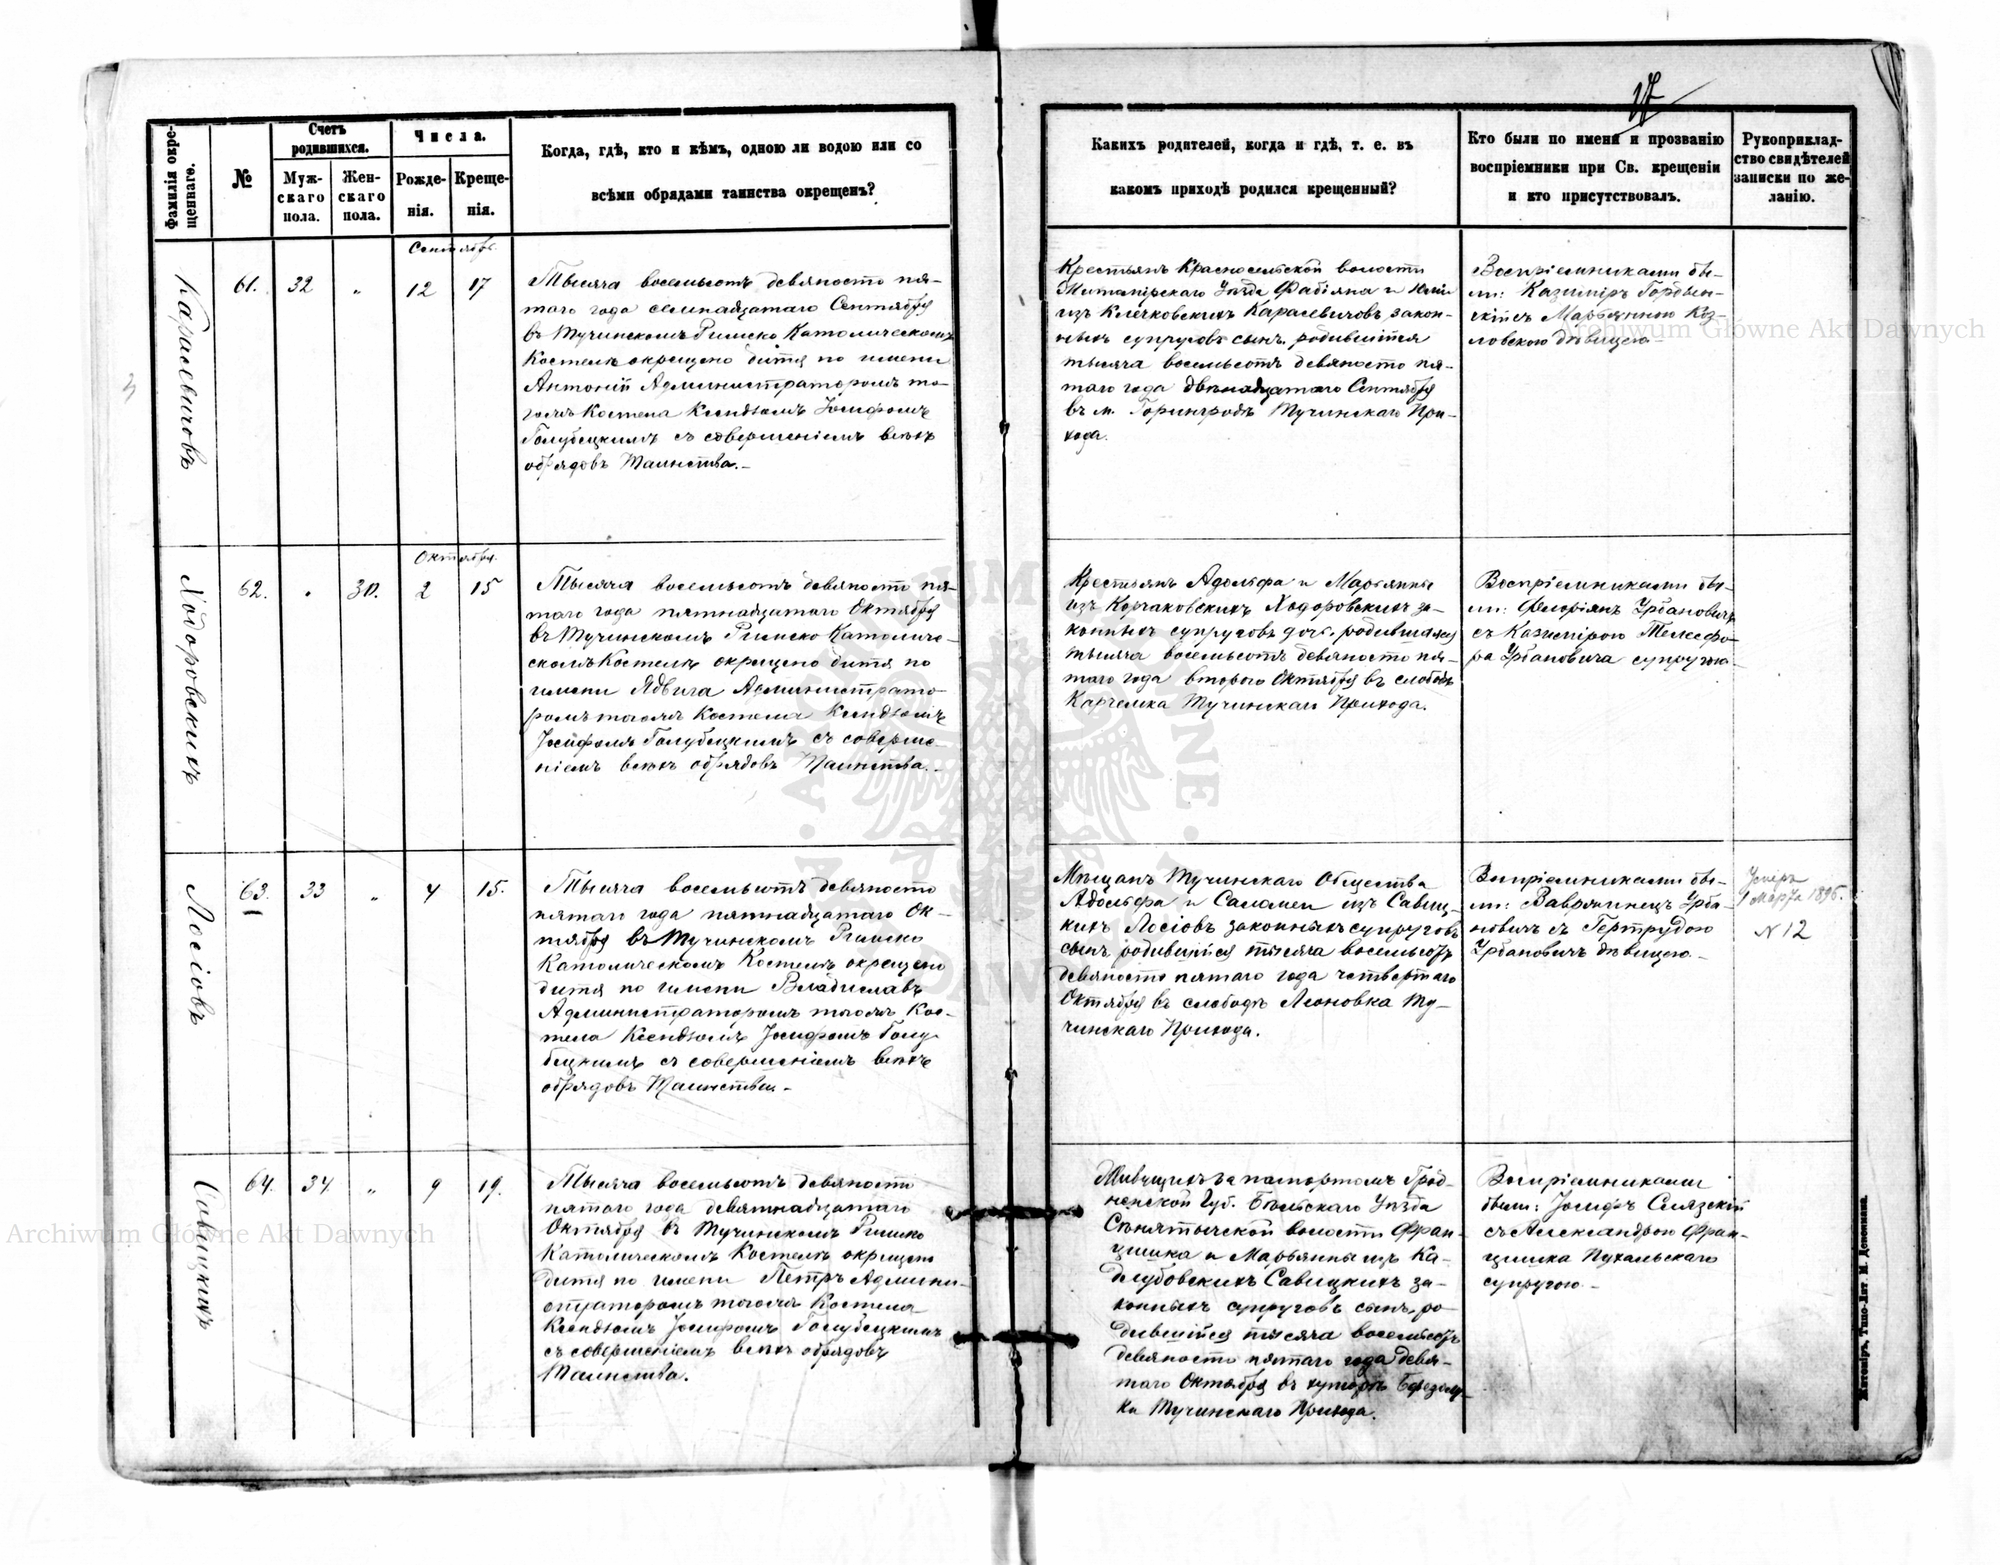 17
Фамилія окре-
щеннаго.
№
Счетъ
родившихся.
Муж-
скаго
пола.
Жен-
скаго
пола.
Числа.
Рожде-
нія.
Креще-
нія.
Когда, гдѣ, кто и кѣмъ, одною ли водою или со
всѣми обрядами таинства окрещенъ?
Какихъ родителей, когда и гдѣ, т. е. въ
какомъ приходѣ родился крещенный?
Кто были по имени и прозванію
воспріемники при Св. крещеніи
и кто присутствовалъ.
Рукоприклад-
ство свидѣтелей
записки по же-
ланію.
Карасевичовъ
61.
32
"
Сентябрь.
12
17
Тысяча восемьсотъ девяносто пя-
таго года семнадцатаго Сентября
въ Тучинскомъ Римско Католическомъ
Костелѣ окрещено дитя по имени
Антоній Администраторомъ то-
гожъ Костела Ксендзомъ Іосифомъ
Голубецкимъ съ совершеніемъ всѣхъ
обрядовъ Таинства.-
Крестьянъ Красносельской волости
Житомірскаго Уѣзда Фабіяна и
изъ Клечковскихъ Карасевичовъ закон-
ныхъ супруговъ сынъ, родившійся
тысяча восемьсотъ девяносто пя-
таго года двѣнадцатаго Сентября
въ м. Горинградъ Тучинскаго При-
хода.
Воспріемниками бы-
ли: Казиміръ Гордын-
скій съ Марьянною Коз-
ловскою дѣвицею-
Ходоровскихъ
62.
"
30.
Октября.
2
15
Тысяча восемьсотъ девяносто пя-
таго года пятнадцатаго Октября
въ Тучинскомъ Римско Католиче-
скомъ Костелѣ окрещено дитя по
имени Ядвига Администрато-
ромъ тогожъ Костела Ксендзомъ
Іосифомъ Голубецкимъ съ соверше-
ніемъ всѣхъ обрядовъ Таинства.-
Крестьянъ Адольфа и Марьянны
изъ Корчаковскихъ Ходоровскихъ за-
конныхъ супруговъ дочь, родившаяся
тысяча восемьсотъ девяносто пя-
таго года втораго Октября въ слободѣ
Каргелка Тучинскаго Прихода.
Воспріемниками бы-
ли: Флоріянъ Урбановичъ
съ Казимірою Телесфо-
ра Урбановича супругою-
Лосіовъ
63.
33
"
4
15.
Тысяча восемьсотъ девяносто
пятаго года пятнадцатаго Ок-
тября въ Тучинскомъ Римско
Католическомъ Костелѣ окрещено
дитя по имени Владиславъ
Администраторомъ тогожъ Кос-
тела Ксендзомъ Іосифомъ Голу-
бецкимъ съ совершеніемъ всѣхъ
обрядовъ Таинства.-
Мѣщанъ Тучинскаго Общества
Адольфа и Саломеи изъ Савиц-
кихъ Лосіовъ законныхъ супруговъ
сынъ, родившійся тысяча восемьсотъ
девяносто пятаго года четвертаго
Октября въ слободѣ Леоновка Ту-
чинскаго Прихода.
Воспріемниками бы-
ли:Ваврининецъ Урба-
новичъ съ Гертрудою
Урбановичъ дѣвицею.-
Умеръ
1 Марта 1896.
N 12
Савицкихъ
64.
34.
"
9
19.
Тысяча восемьсотъ девяносто
пятаго года девятнадцатаго
Октября въ Тучинскомъ Римско
Католическомъ Костелѣ окрещено
дитя по имени Петръ Админи-
страторомъ тогожъ Костела
Ксендзомъ Іосифомъ Голубецкимъ
съ совершеніемъ всѣхъ обрядовъ
Таинства.
Живущихъ за паспортомъ Грод-
ненской Губ. Бѣльскаго Уѣзда
Сѣнятычской волости Фран-
цишка и Марьянны изъ Ка-
длубовскихъ Савицкихъ за-
конныхъ супруговъ сынъ, ро-
дившійся тысяча восемьсотъ
девяносто пятаго года девя-
таго Октября въ хуторѣ Березов-
ка Тучинскаго Прихода.
Воспріемниками
были: Іосифъ Слязскій
съ Александрою Фран-
цишка Пухальскаго
супругою.-
Житомір, Типо-Лит. М. Дененмана.
Archiwum Główne Akt Dawnych
Archiwum Główne Akt Dawnych